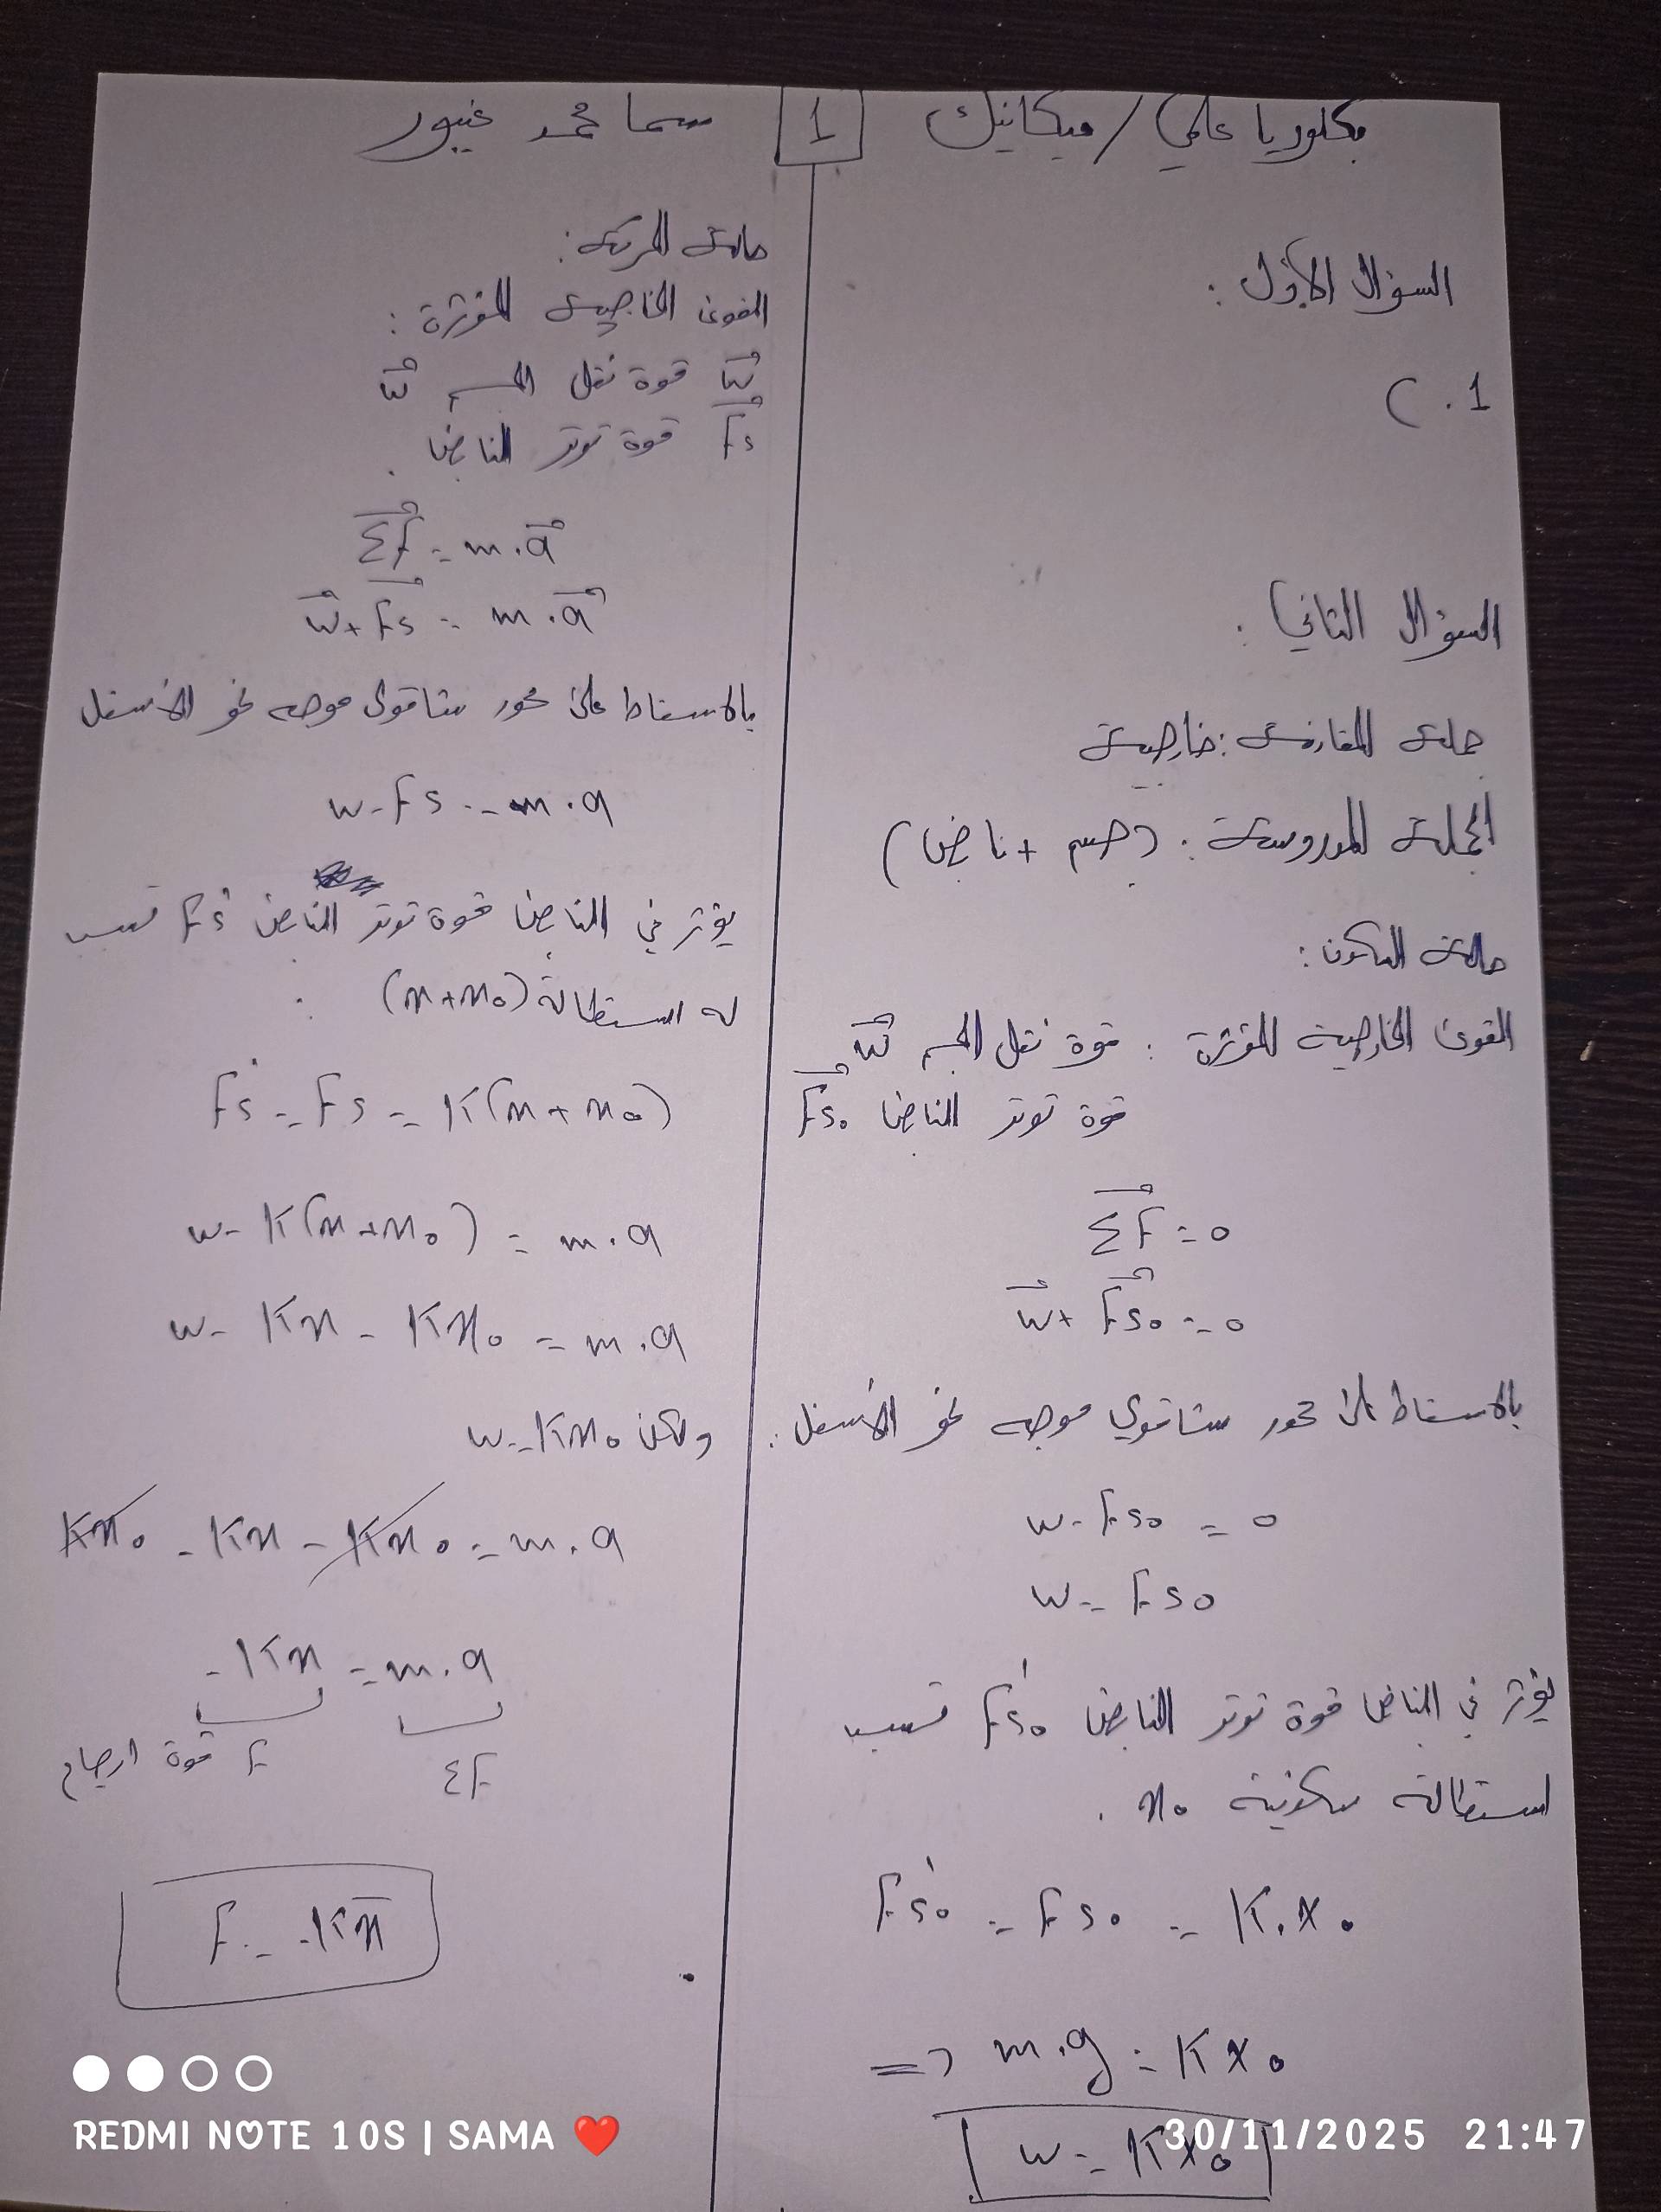 بكلوريا علمي / ميكانيك 1 سما محمد غيور
السؤال الأول :
1. C
السؤال الثاني :
جملة المقارنة : خارجية
الجملة المدروسة : (جسم + ناض)
حالة السكون :
القوى الخارجية المؤثرة : قوة ثقل الجسم W⃗
قوة توتر الناض F⃗s₀
Σ⃗F = 0
W⃗ + F⃗s₀ = 0
بالاسقاط على محور شاقولي موجه نحو الأسفل :
w - Fs₀ = 0
w = Fs₀
يؤثر في الناض قوة توتر النابض F's₀ تسبب
استطالة سكونية x₀ .
F's₀ = Fs₀ = K.x₀
=> m.g = Kx₀
w = Kx₀
حالة الحركة :
القوى الخارجية المؤثرة :
W⃗ قوة ثقل الجسم W⃗
F⃗s قوة توتر الناض .
Σ⃗F = m.a⃗
W⃗ + F⃗s = m.a⃗
بالاسقاط على محور شاقولي موجه نحو الأسفل
w - Fs = m.a
يؤثر في الناض قوة توتر الناض F's تسبب
له استطالة (x+x₀) :
F's = Fs = K(x+x₀)
w - K(x+x₀) = m.a
w - Kx - Kx₀ = m.a
ولكن w = Kx₀
Kx₀ - Kx - Kx₀ = m.a
-Kx = m.a
F قوة ارجاع ΣF
F = -Kx̄
REDMI NOTE 10S | SAMA ❤️
30/11/2025 21:47